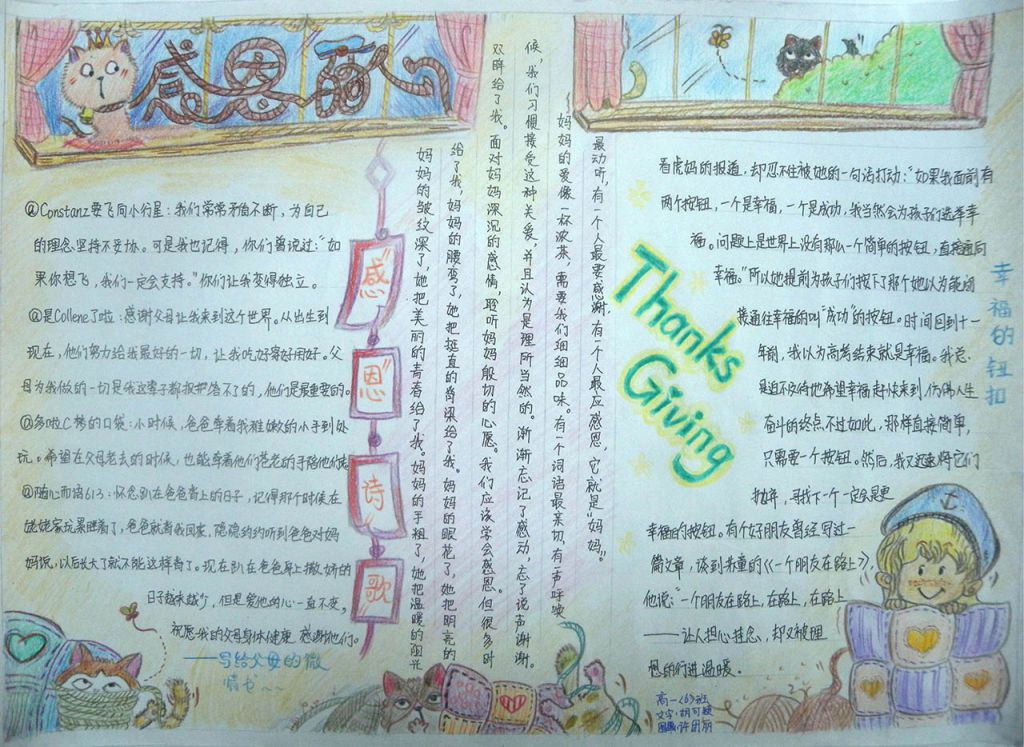 感恩
@Constanz要飞向小行星：我们常常矛盾不断，为自己
的理念坚持不妥协。可是我也记得，你们曾说过：“如
果你想飞，我们一定会支持。”你们让我变得独立。
@是Collene了啦：感谢父母让我来到这个世界。从出生到
现在，他们努力给我最好的一切，让我吃好穿好用好。父
母为我做的一切是我这辈子都报把答不了的，他们是最重要的。
@多啦C梦的口袋：小时候，爸爸牵着我稚嫩的小手到处
玩。希望在父母老去的时候，也能牵着他们苍老的手陪他们
@随心而诸613：怀念趴在爸爸背上的日子，记得那个时候在
姥姥家玩累睡着了，爸爸就背我回家，隐隐约约听到爸爸对妈
妈说，以后长大了就不能这样背了。现在趴在爸爸身上撒娇的
日子越来越少，但是爱他的心一直不变。
祝愿我的父母身体健康，感谢他们。
——写给父母的微
情书～～
“感
恩”
诗
歌
妈妈的皱纹深了，她把美丽的青春给了我。妈妈的手粗了，她把温暖的阳光
给了我，妈妈的腰弯了，她把挺直的脊梁给了我。妈妈的眼花了，她把明亮的
双眸给了我。面对妈妈深沉的感情，聆听妈妈殷切的心愿。我们应该学会感恩。但很多时
候，我们习惯接受这种关爱，并且认为是理所当然的。渐渐忘记了感动，忘了说声谢谢。
妈妈的爱像一杯浓茶，需要我们细细品味。有一个词语最亲切，有一声呼唤
最动听，有一个人最要感谢，有一个人最应感恩，它就是“妈妈”。
Thanks
Giving
幸福的钮扣
看虎妈的报道，却忍不住被她的一句话打动：“如果我面前有
两个按钮，一个是幸福，一个是成功，我当然会为孩子们选择幸
福。问题上是世界上没有那么一个简单的按钮，直接通向
幸福。”所以她提前为孩子们按下了那个她以为能够
接通往幸福的叫“成功”的按钮。时间回到十一
年前，我以为高考结束就是幸福。我总
是迫不及待地希望幸福赶快来到，仿佛人生
奋斗的终点不过如此，那样直接简单，
只需要一个按钮。然后，我又迅速将它们
抛弃，寻找下一个一定会是更
幸福的按钮。有个好朋友曾经写过一
篇文章，谈到韦童的《一个朋友在路上》，
他说：“一个朋友在路上，在路上，在路上
——让人担心挂念，却又被理
想的行进温暖。
高一〈6〉班